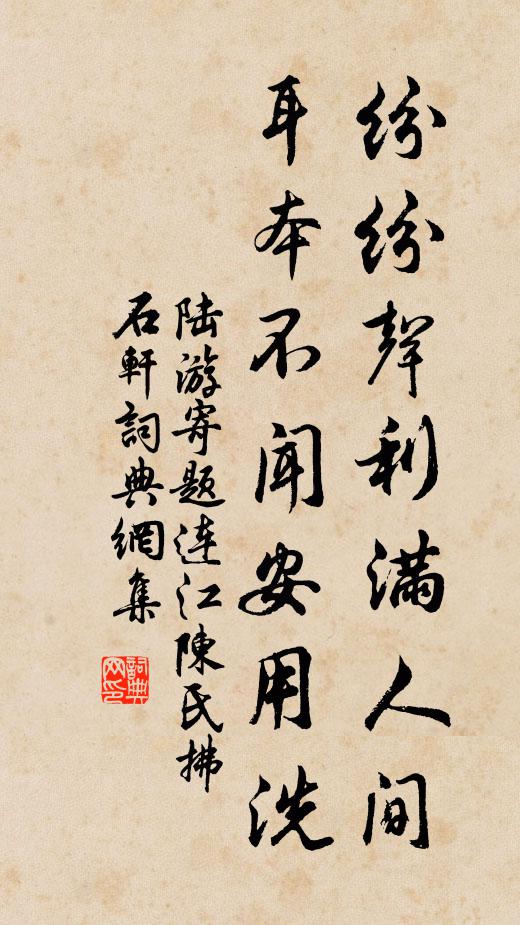 纷纷聲利满人间
耳本不闻安用洗
陆游寄题连江陳氏拂
石軒詞典網集
詞典
网印